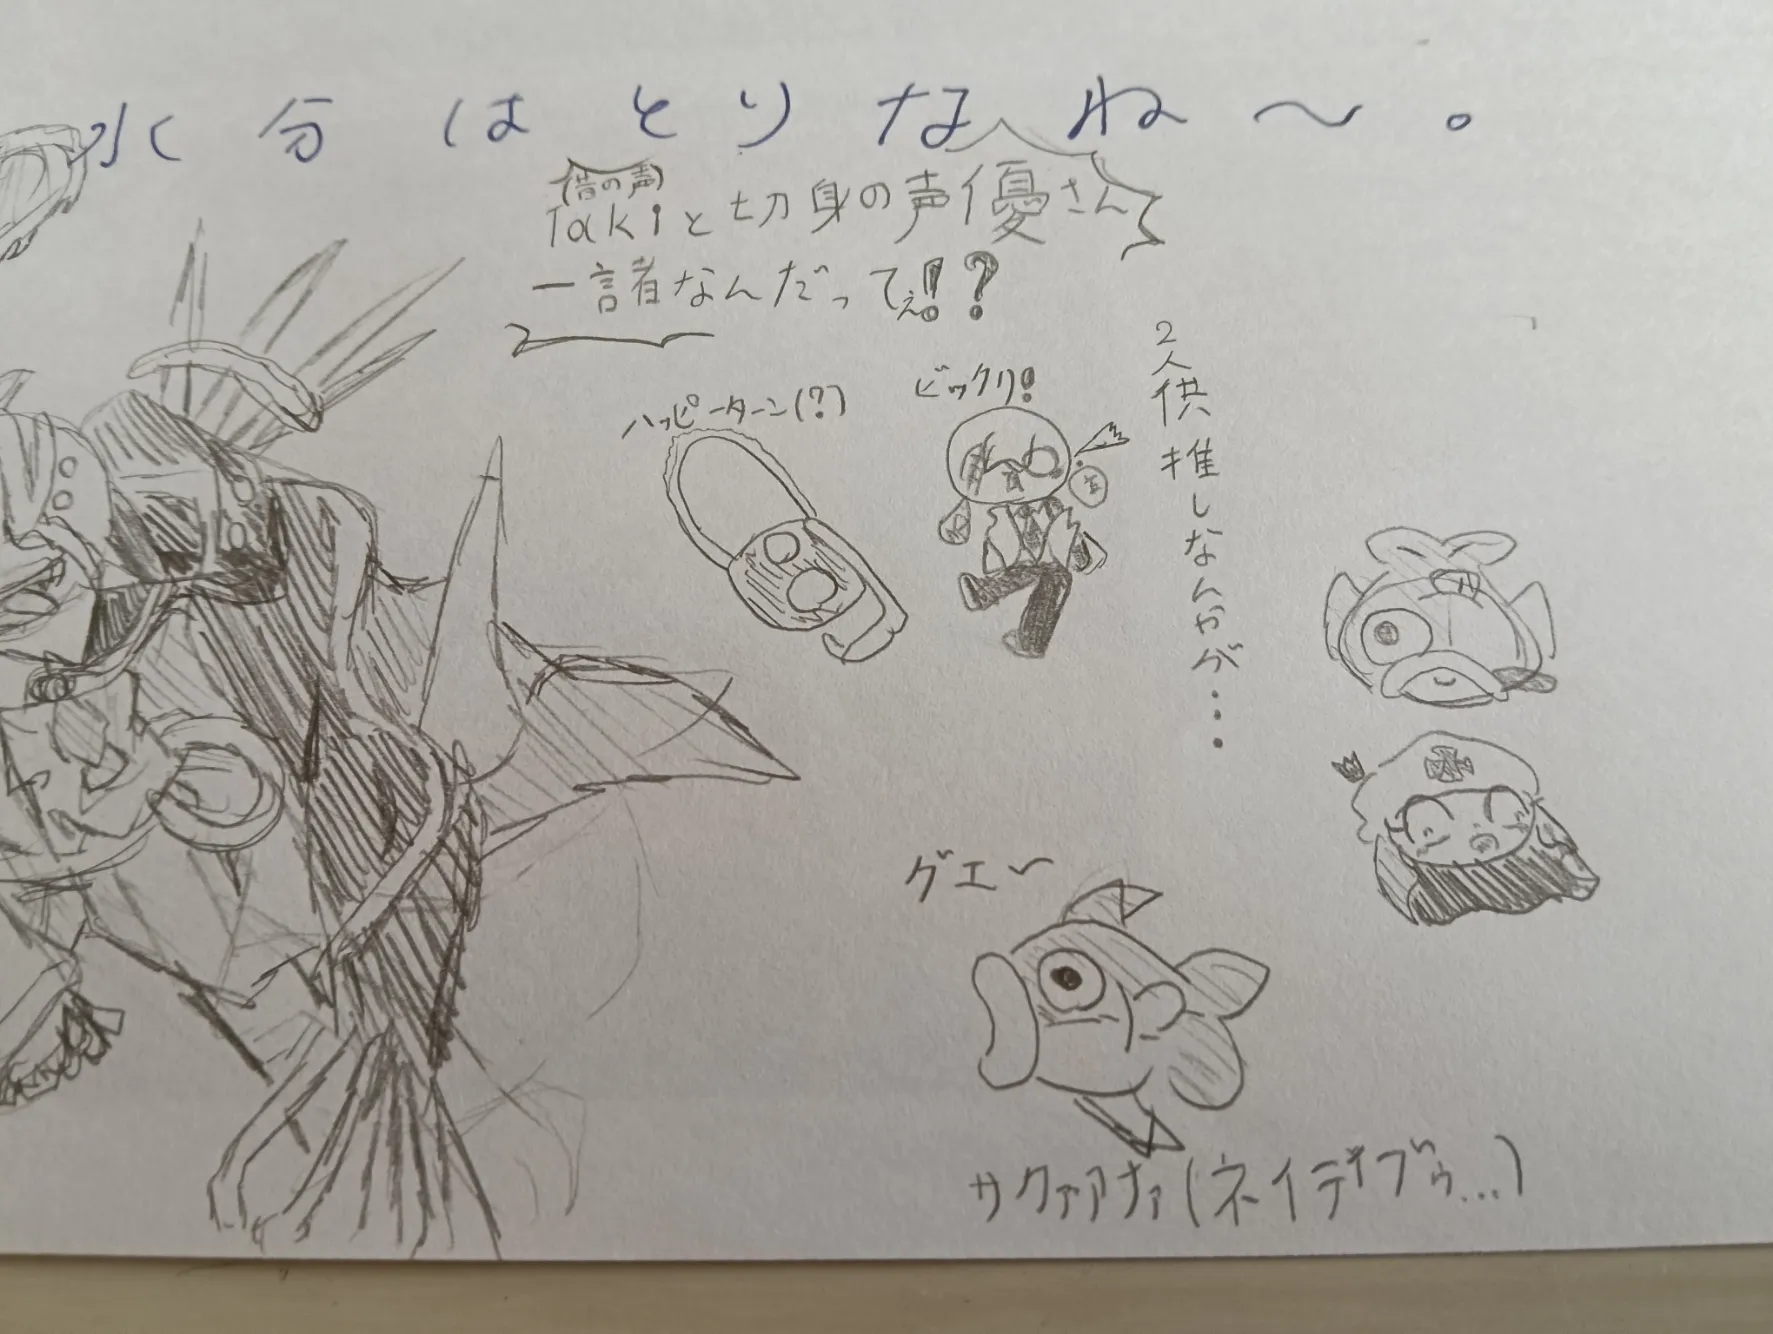 水分はとりなね〜。
(昔の声)
Takiと切身の声優さん
一諸者なんだってぇ!?
ハッピーターン(?)
ビックリ!
2人供推しなんやが...
グエ〜
サクァアナァ(ネイティブゥ...)